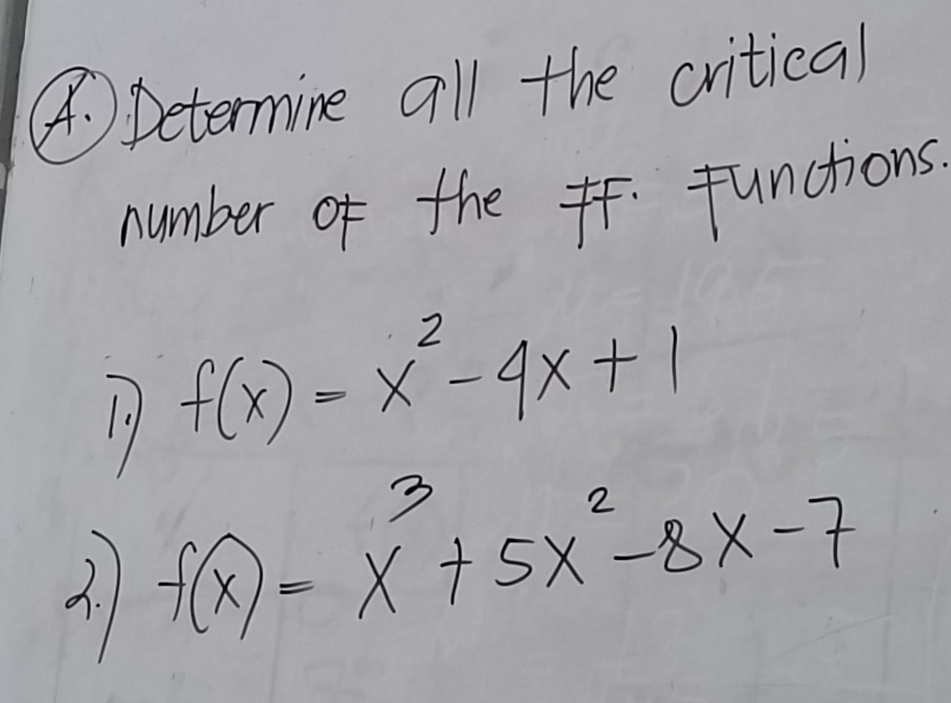 A. Determine all the critical
number of the ff. functions.
1.) f(x) = x² - 4x + 1
2.) f(x) = x³ + 5x² - 8x - 7